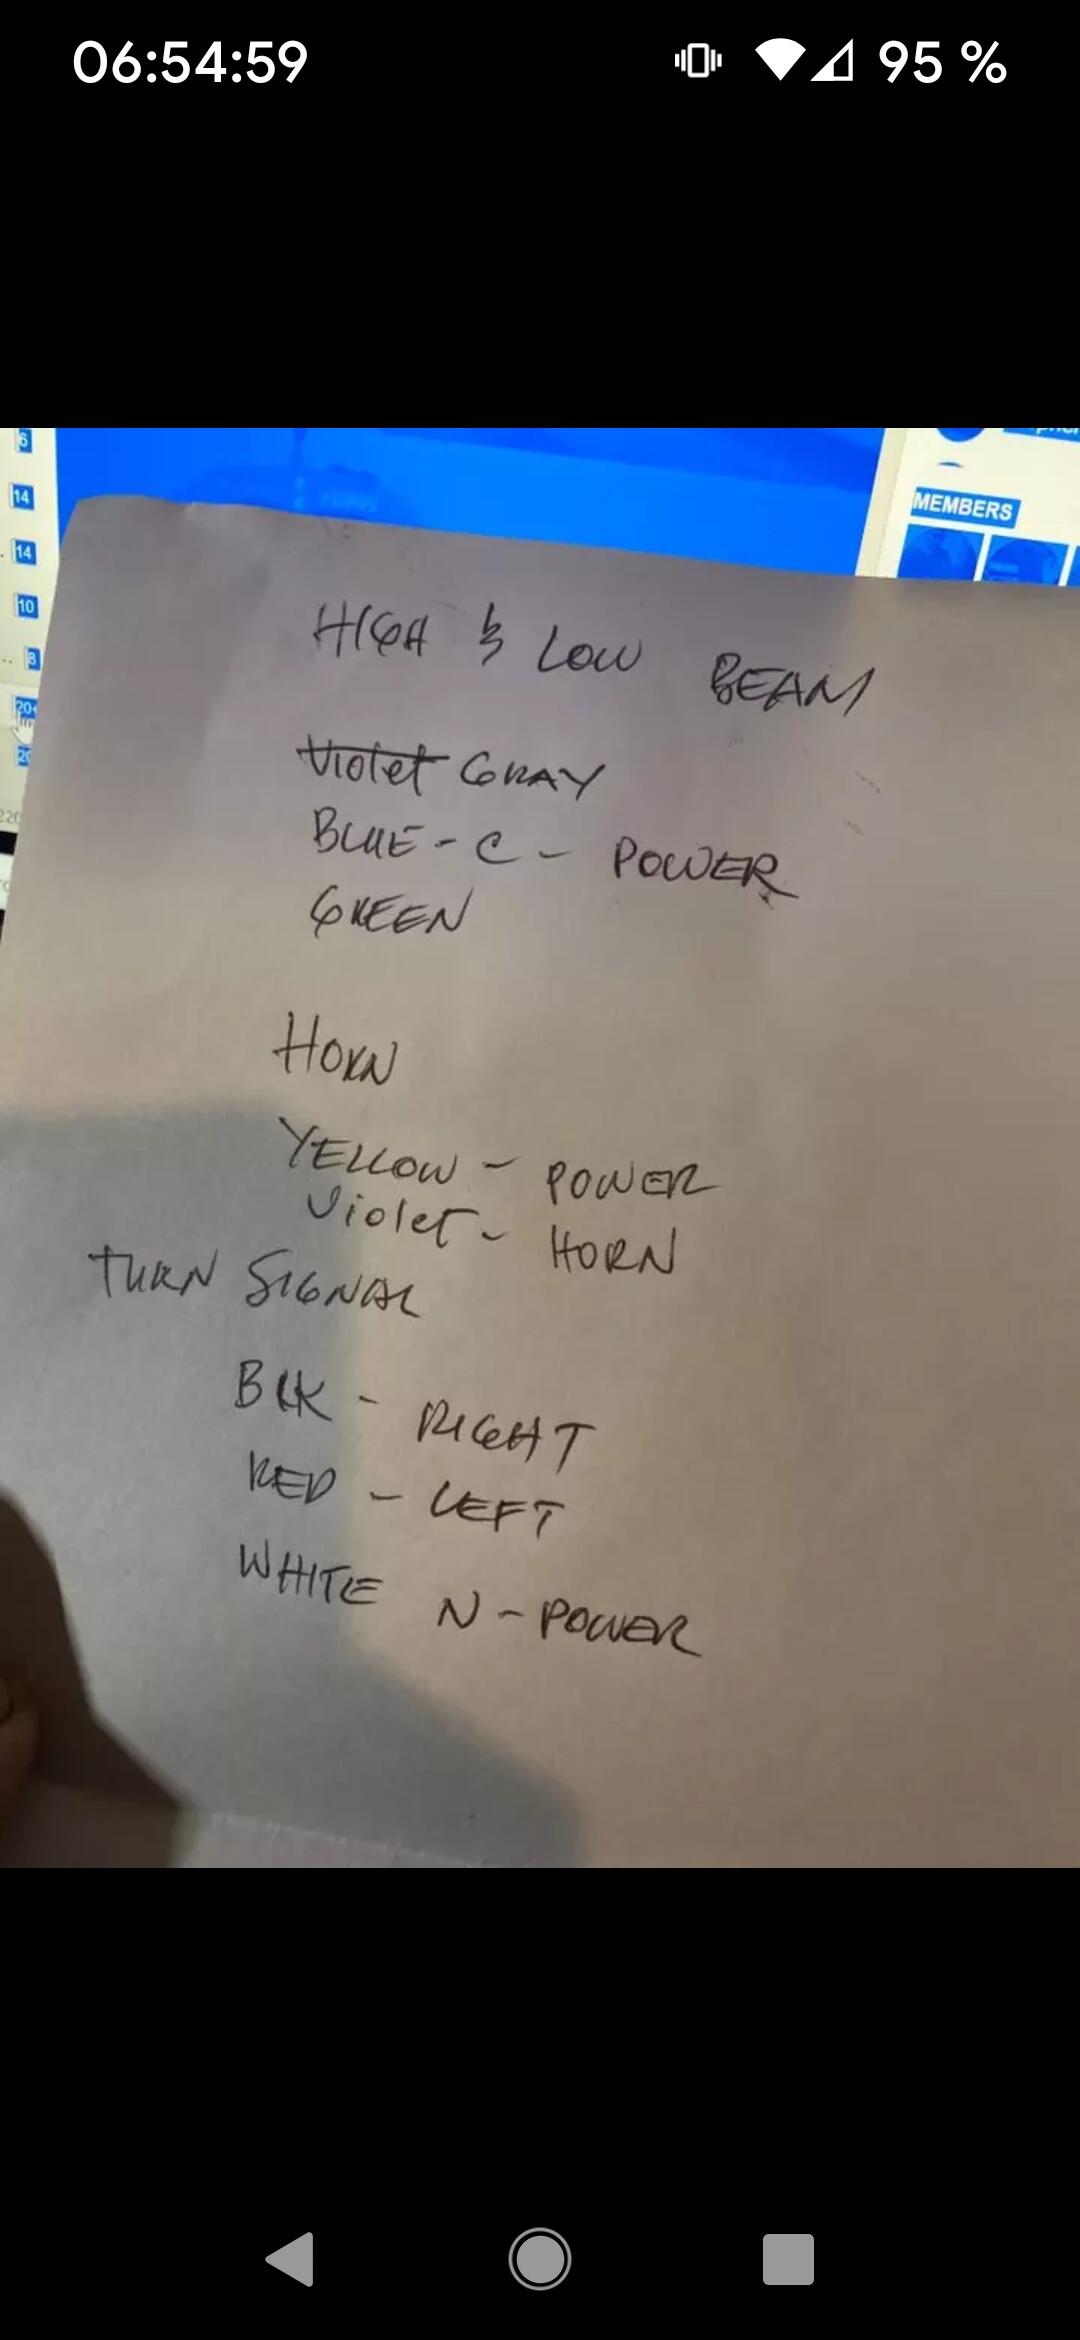 06:54:59 95 %
6
14
14
10
8
20+
20
MEMBERS
HIGH & LOW BEAM
Violet GRAY
BLUE - C - POWER
GREEN
HORN
YELLOW - POWER
Violet - HORN
TURN SIGNAL
BLK - RIGHT
RED - LEFT
WHITE N - POWER